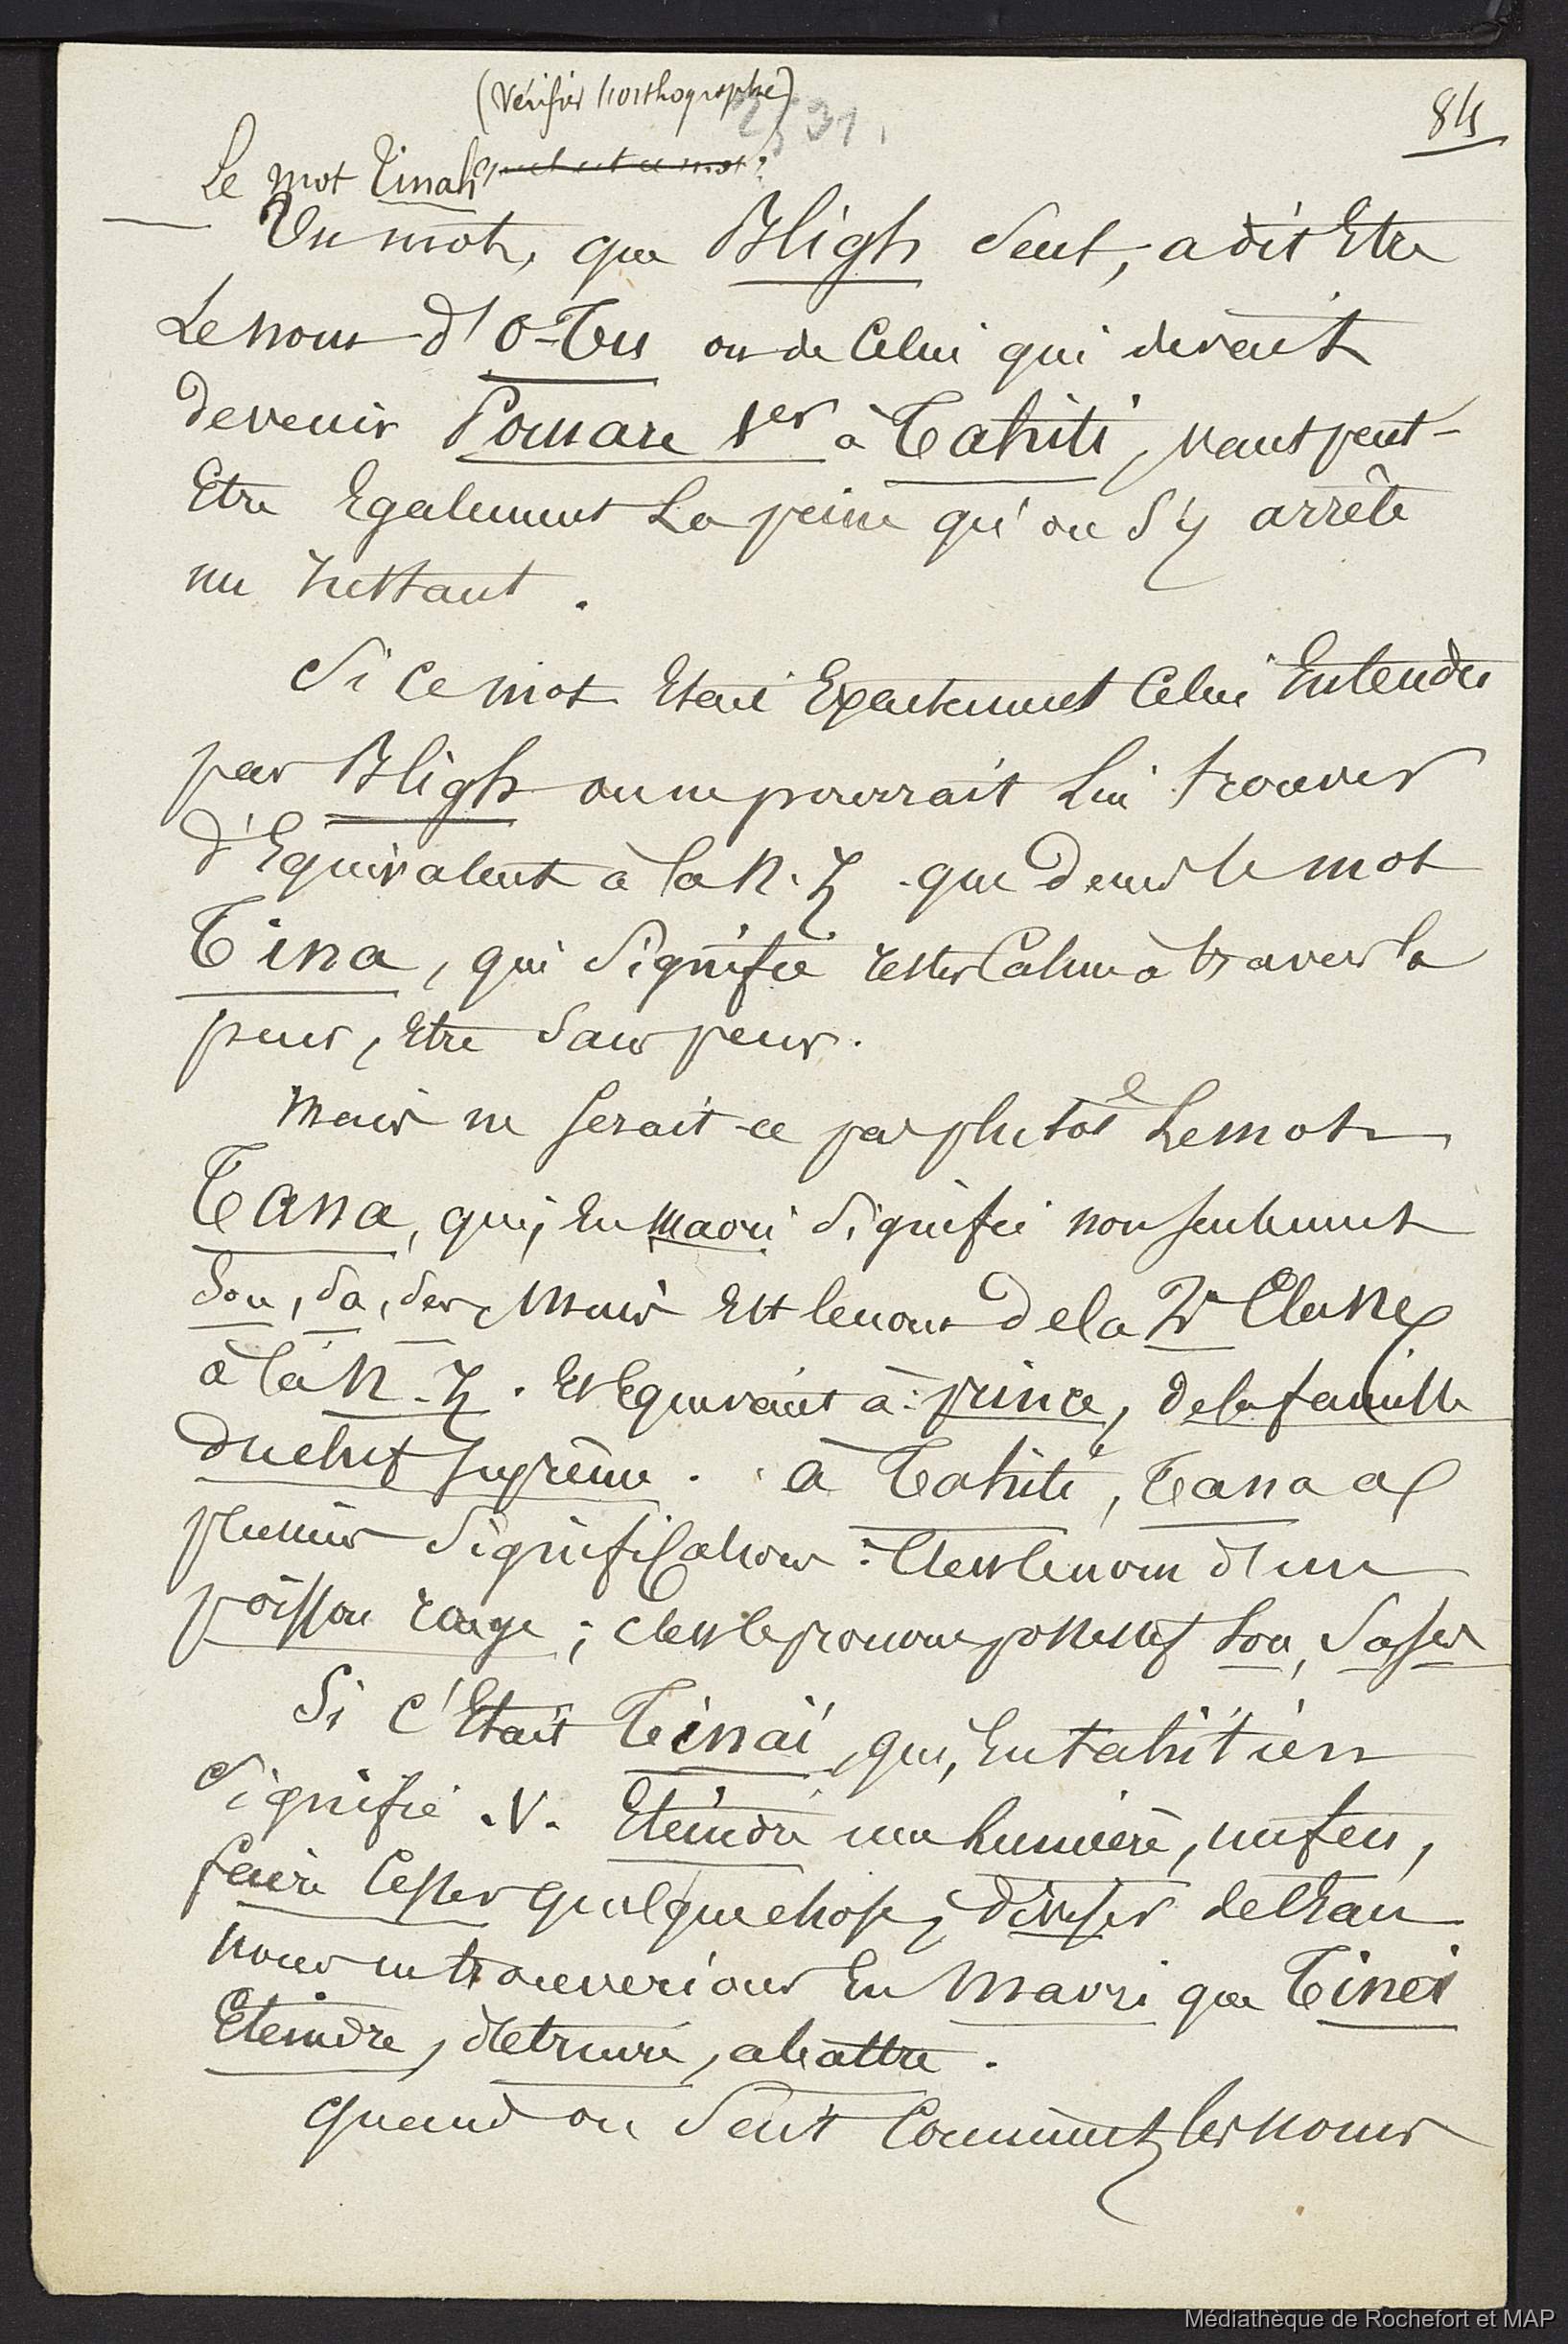 (Vérifier l'orthographe)
231.
84
Le mot Tinah, quel est ce mot?
Un mot, que Bligh seul, a dit Etre
Le nom d'O-Tu ou de Celui qui devait
devenir Pomare 1er à Tahiti, vaut peut-
Etre Egalement La peine qu'on s'y arrête
un instant.
Si ce mot Etait Exactement Celui Entendu
par Bligh on ne pourrait Lui trouver
d'Equivalent à la N.Z. que dans le mot
Tina, qui signifie rester Calme à travers la
peur, Etre sans peur.
Mais ne serait-ce pas plutôt Le mot
Tana, qui, En maori signifie non seulement
Son, sa, ses, mais Est le nom de la 2e Classe
à la N.Z. Et Equivaut à: prince, de la famille
du chef suprême. à Tahiti, Tana a
plusieurs significations: C'est le nom d'un
poisson rouge; c'est le pronom possessif Son, Sa, ses
Si c'Etait Tinai, qui, En tahitien
signifie .V. Eteindre une lumière, un feu,
faire Cesser quelque chose, diviser de l'Eau
nous ne trouverions En Maori que Tinei
Eteindre, détruire, abattre.
quand on sait Comment les noms
Médiathèque de Rochefort et MAP